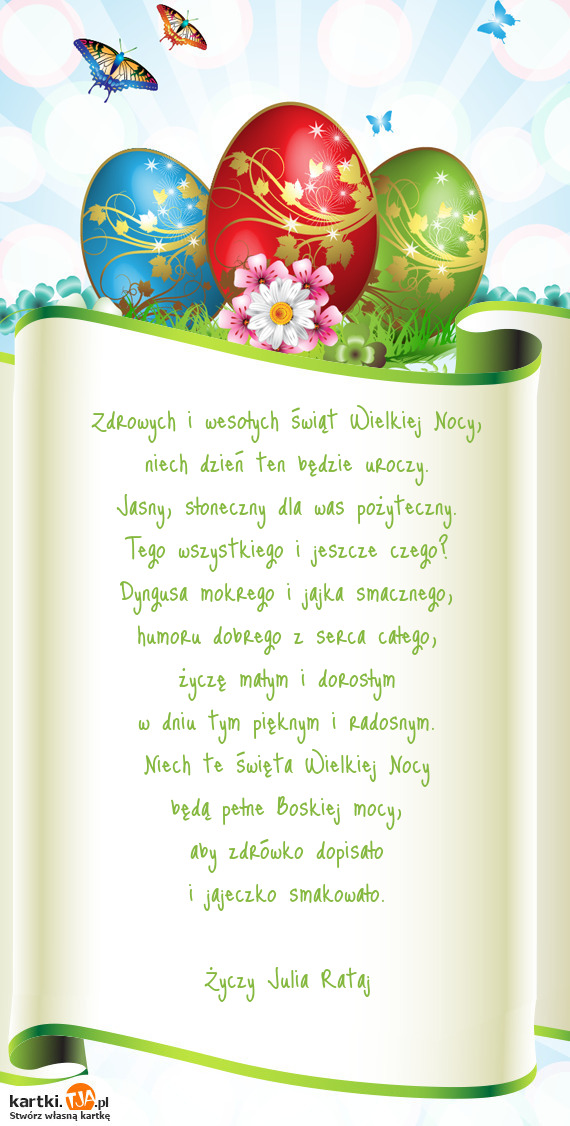 Zdrowych i wesołych świąt Wielkiej Nocy,
niech dzień ten będzie uroczy.
Jasny, słoneczny dla was pożyteczny.
Tego wszystkiego i jeszcze czego?
Dyngusa mokrego i jajka smacznego,
humoru dobrego z serca całego,
życzę małym i dorosłym
w dniu tym pięknym i radosnym.
Niech te święta Wielkiej Nocy
będą pełne Boskiej mocy,
aby zdrówko dopisało
i jajeczko smakowało.
Życzy Julia Rataj
kartki.TJA.pl
Stwórz własną kartkę